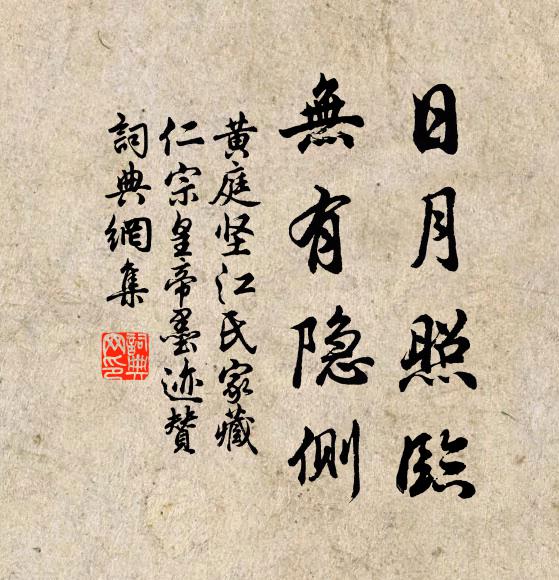 日月照臨
無有隐側
黄庭坚江民家藏
仁宗皇帝墨迹贊
詞典網集
詞典
网印